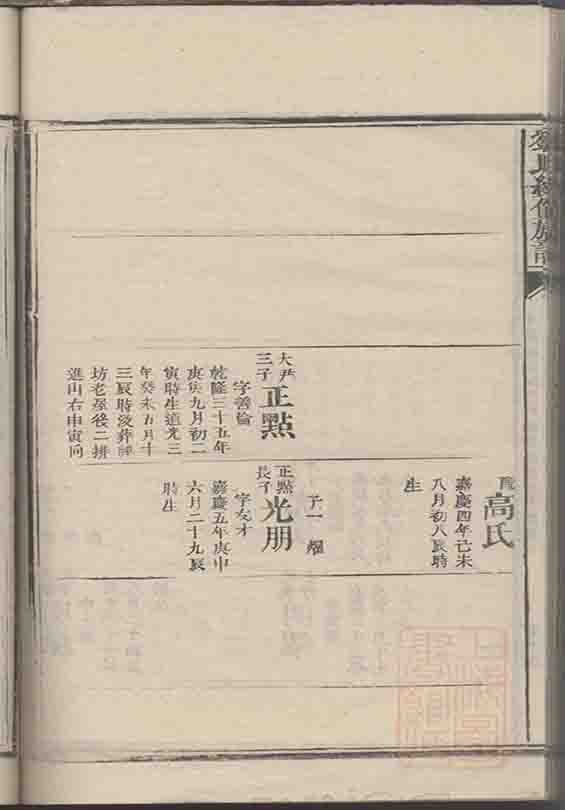 氏續修族譜
配
高氏
嘉慶四年己未
八月初八辰時
生
子一
大尹
三子
正點
字善倫
乾隆三十五年
庚寅九月初二
寅時生道光三
年癸未五月十
三辰時歿葬
坊老屋後二拼
進山右申寅向
正點
長子
光朋
字友才
嘉慶五年庚申
六月二十九辰
時生